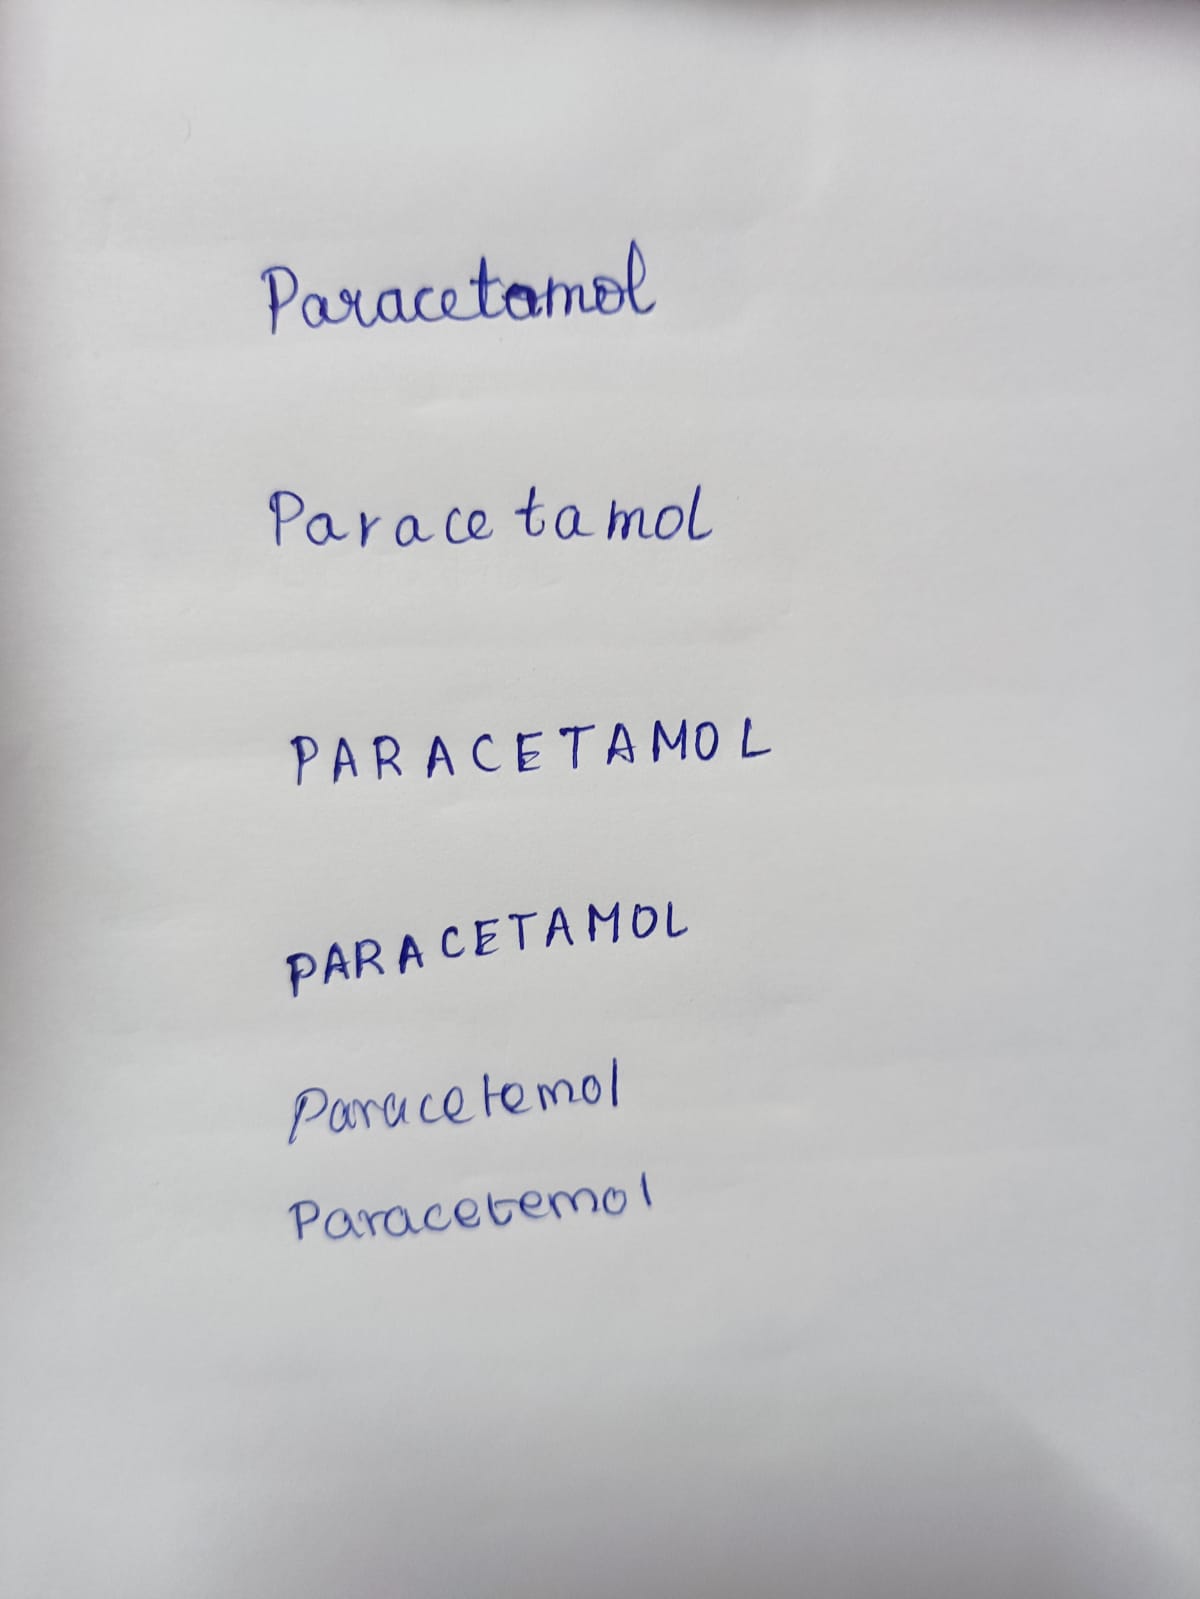 Paracetamol
Paracetamol
PARACETAMOL
PARACETAMOL
Paracetemol
Paracetemol